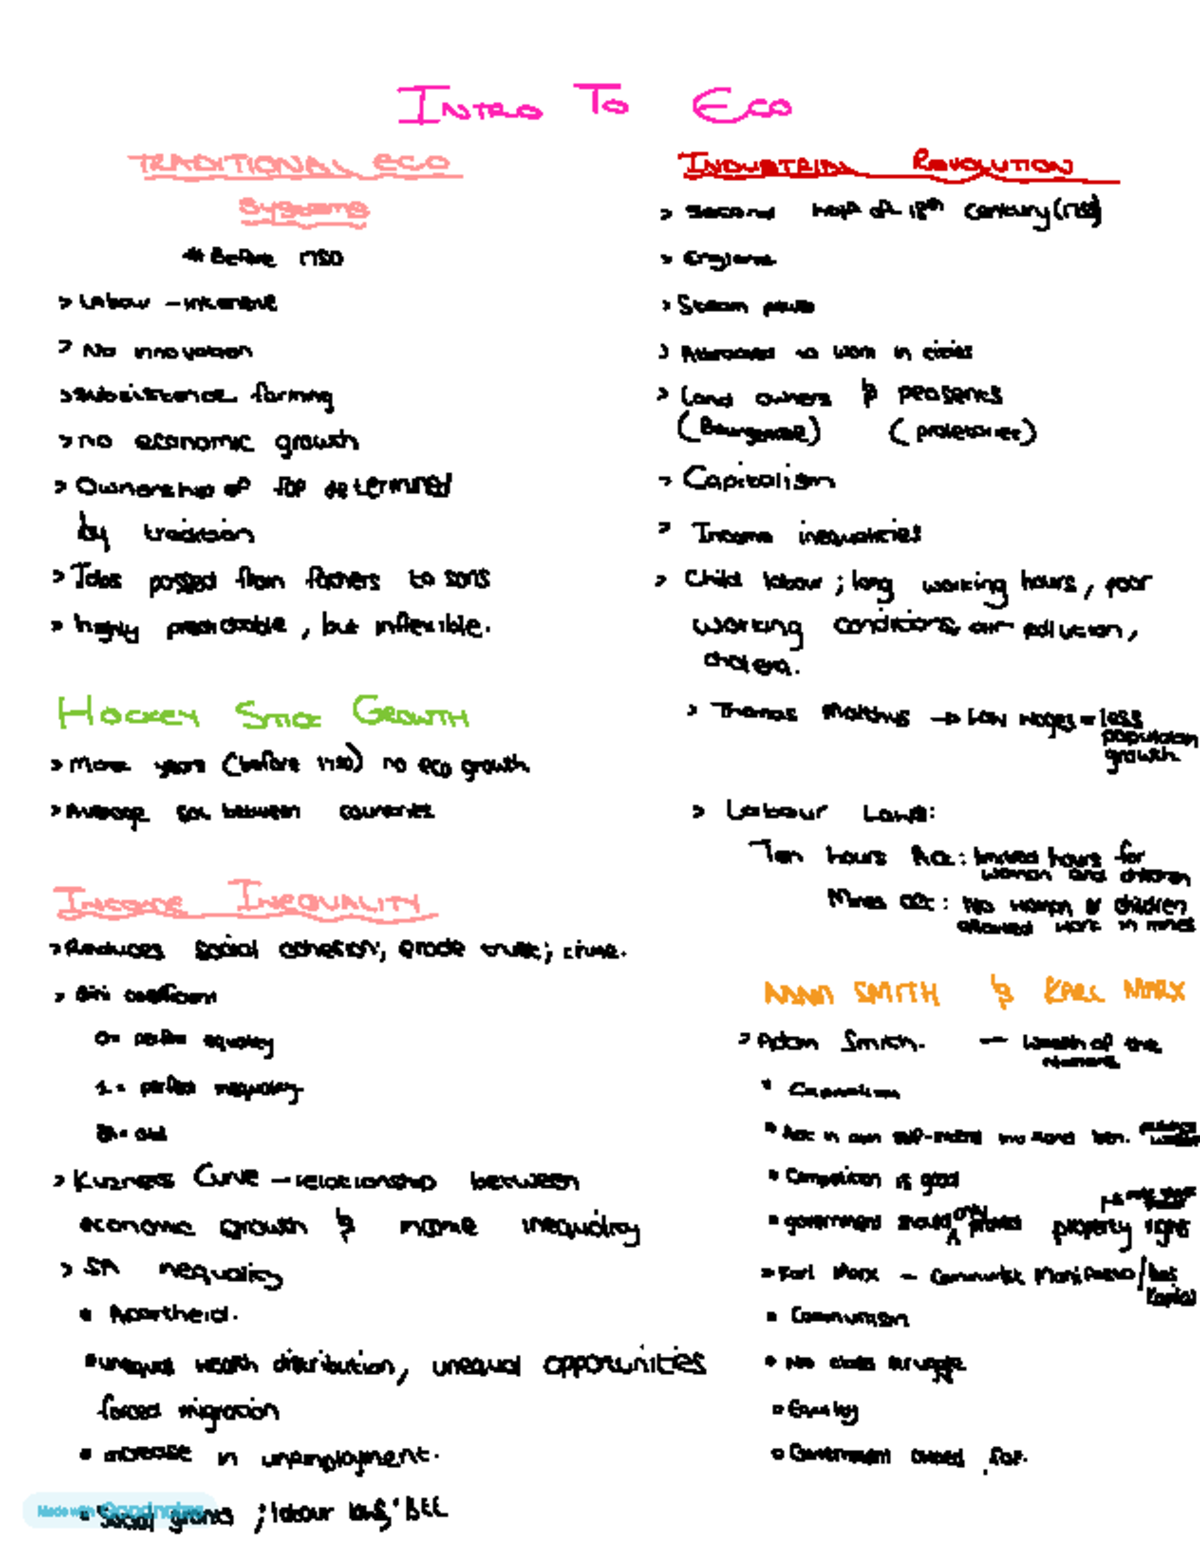 INTRO TO ECO
TRADITIONAL ECO
SYSTEMS
* Before 1750
> Labour - intensive
> No innovation
> subsistence farming
> no economic growth
> Ownership of FOP determined
by tradition
> Jobs passed from fathers to sons
> highly predictable, but inflexible.
HOCKEY STICK GROWTH
> Many years (before 1750) no eco growth
> Average SOL between countries
INCOME INEQUALITY
> Reduces social cohesion; erode trust; crime.
> Gini coefficient
0 = perfect equality
1 = perfect inequality
> Kuznets Curve - relationship between
economic growth & income inequality
> SA inequality
• Apartheid.
• unequal wealth distribution, unequal opportunities
forced migration
• increase in unemployment.
• Social grants ; labour laws; BEE
Made with Goodnotes
INDUSTRIAL REVOLUTION
> Second half of 18th Century (1750)
> England
> Steam power
> Attracted to work in cities
> Land owners & peasents
(Bourgeoisie) (proletariat)
> Capitalism
> Income inequalities
> Child labour ; long working hours, poor
working conditions, air pollution,
cholera.
> Thomas Malthus → Low wages = less
population
growth
> Labour Laws:
Ten hours Act : limited hours for
women and children
Mines act : No women or children
allowed work in mines
ADAM SMITH & KARL MARX
> Adam Smith. — Wealth of the
nations
• Capitalism
• Act in own self-interest
• Competition is good
• government should only protect property right
> Karl Marx - Communist Manifesto / Das
Kapital
• Communism
• No class struggle
• Equality
• Government owned FOP.